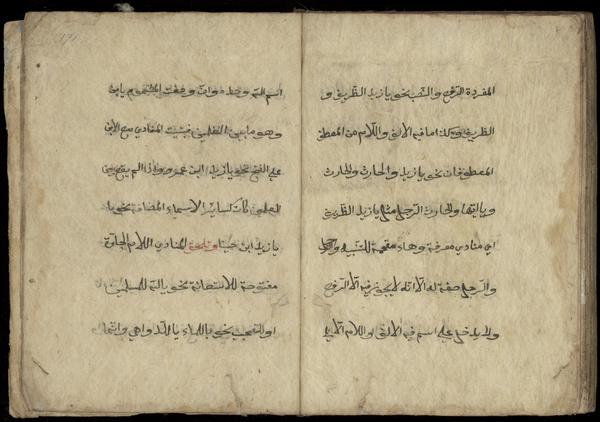 المفردة الرفع والنصب نحو يا زيد الظريف و
الظريف وكذا ما فيه الالف واللام من المعطوف
المعطوفان نحو يا زيد والحارث والحارث
ويا ايها والحارث الرجل مثل يا زيد الظريف
اي منادي معرفة وهاء مقحمة للتنبيه
والرجل صفة له الا انه لا يجوز فيه الا الرفع
ولا يدخل علي اسم فيه الالف واللام الا
اسم الله وحده وان وصفت المضموم بابن
وهو ما بين العلمين فبنيت المنادي مع الابن
علي الفتح نحو يا زيد ابن عمرو واذا لم يقع بين
العلمين كان كساير الاسماء المضافة نحو يا
يا زيد ابن اخينا وتلحق المنادي اللام الجارة
مفتوحة للاستغاثة نحو يا لله للمسلمين
او للتعجب نحو يا للماء يا للدواهي